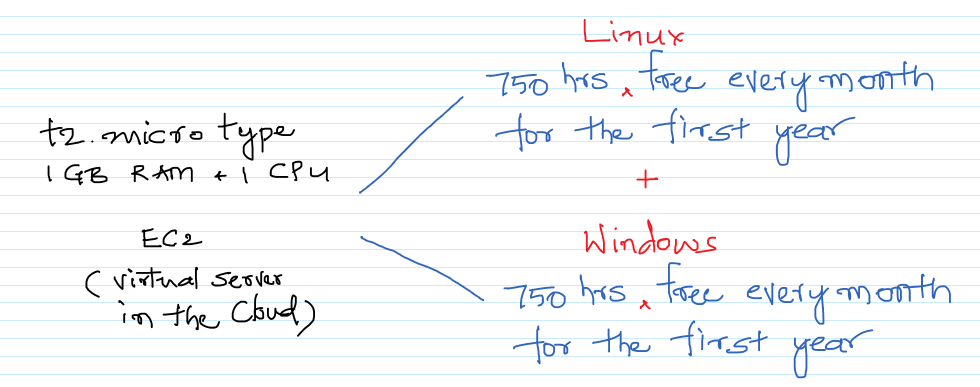 t2.micro type
1 GB RAM + 1 CPU
EC2
(virtual server
in the Cloud)
Linux
750 hrs ^ free every month
for the first year
+
Windows
750 hrs ^ free every month
for the first year